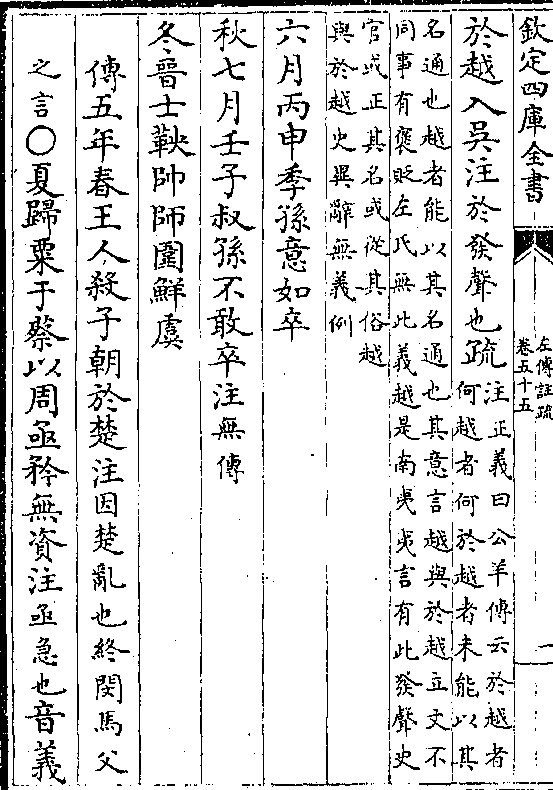 欽定四庫全書
左傳註疏
卷五十五
一
於越入吳注於發聲也疏
注正義曰公羊傳云於越者
何越者何於越者未能以其
名通也越者能以其名通也其意言越與於越立文不
同事有褒貶左氏無此義越是南夷夷言有此發聲史
官或正其名或從其俗越
與於越史異辭無義例
六月丙申季孫意如卒
秋七月壬子叔孫不敢卒注無傳
冬晉士鞅帥師圍鮮虞
傳五年春王人殺子朝於楚注因楚亂也終閔馬父
之言○夏歸粟于蔡以周亟矜無資注亟急也音義